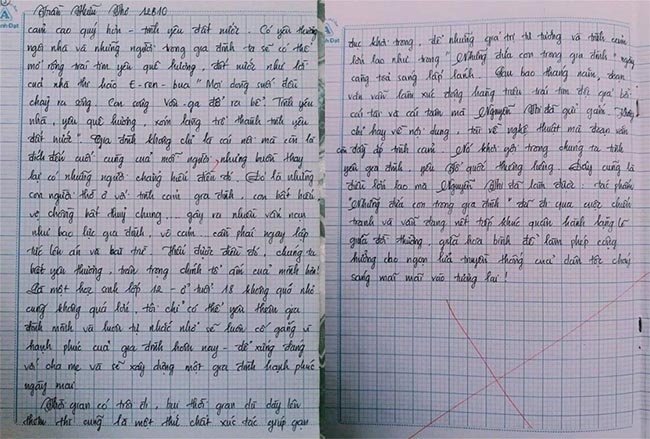 Trần Thiều Thơ 12B10
cảm cao quý hơn - tình yêu đất nước. Có yêu thương
ngôi nhà và những người trong gia đình ta sẽ có thể
mở rộng trái tim yêu quê hương, đất nước như lời
của nhà thơ hoặc E-ren-bua "Mọi dòng suối đều
chảy ra sông. Con sông Vôn-ga đổ ra bể. Tình yêu
nhà, yêu quê hương, xóm làng trở thành tình yêu
đất nước". Gia đình không chỉ là cái nôi mà còn là
điểm đến cuối cùng của mỗi người, nhưng buồn thay
lại có những người chẳng hiểu điều đó. Đó là những
con người thờ ơ với tình cảm gia đình, con bất hiếu
vợ chồng bất thuỷ chung... gây ra nhiều vấn nạn
như bạo lực gia đình, vô cảm... cần phải ngay lập
tức lên án và bài trừ. Thấu được điều đó, chúng ta
biết yêu thương, trân trọng chính tổ ấm của mình hơn!
Là một học sinh lớp 12 - ở tuổi 18 không quá nhỏ
cũng không quá lớn, tôi chỉ có thể yêu thêm gia
đình mình và luôn tự nhắc nhở sẽ luôn cố gắng vì
hạnh phúc của gia đình hôm nay - để xứng đáng
với cha mẹ và sẽ xây dựng một gia đình hạnh phúc
ngày mai
Thời gian có trôi đi, bụi thời gian dù dày lên
thêm thì cũng là một thứ chất xúc tác giúp gạn
đục khơi trong, để những giá trị tư tưởng và tình cảm
lớn lao như trong "Những đứa con trong gia đình" ngày
càng toả sáng lấp lánh. Sau bao tháng năm, đoạn
văn vẫn làm xúc động hàng triệu trái tim độc giả bởi
cái tài và cái tâm mà Nguyễn Thi đã gửi gắm. Không
chỉ hay về nội dung, tới về nghệ thuật mà đoạn văn
còn dạy ấp tình cảm. Nó khơi gợi trong chúng ta tình
yêu gia đình, yêu Tổ quốc thương tưởng. Đấy cũng là
điều lớn lao mà Nguyễn Thi đã làm được: tác phẩm
"Những đứa con trong gia đình" dù đi qua cuộc chiến
tranh và vẫn đang nối tiếp khúc quân hành lặng lẽ
giữa đời thường, giữa hoà bình để làm phép cộng
hưởng cho ngọn lửa truyền thống của dân tộc cháy
sáng mãi mãi vào tương lai!